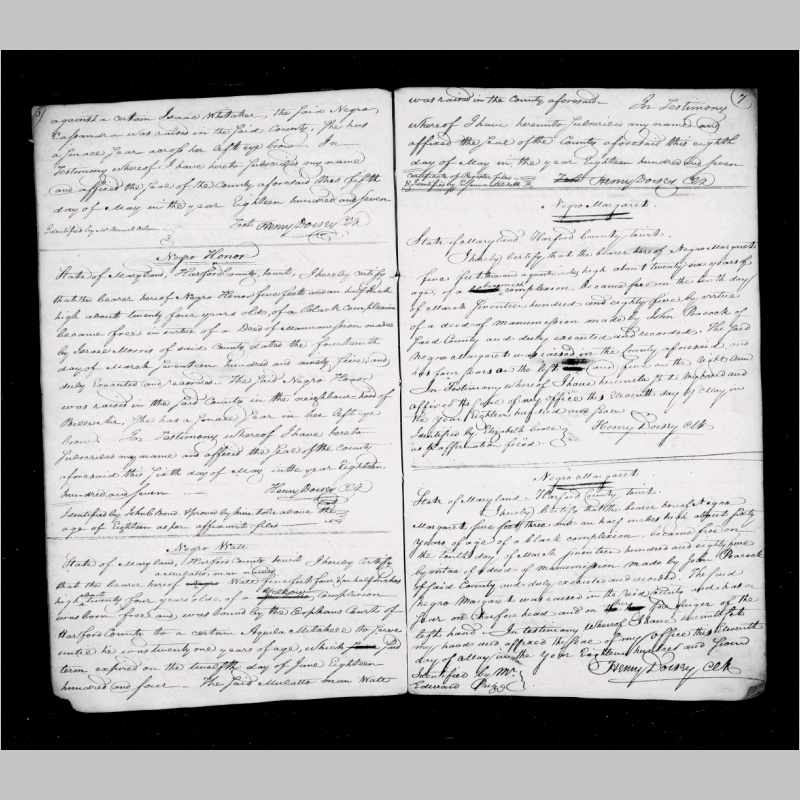 against a certain Isaac Whitaker, the said Negro
Cassandra was raised in the said County, She has
a small scar across her left eye brow. In
Testimony whereof I have hereto subscribed my name
and affixed the Seal of the County aforesaid this fifth
day of May in the year Eighteen hundred and seven
Identified by
Test Henry Dorsey Clk
Negro Honor
State of Maryland, Harford County, towit, I hereby certify
that the bearer hereof Negro Honor five feet and an half Inch
high about twenty four years old, of a Black Complexion
became free in virtue of a Deed of Manumission made
by of said County dated the fourteenth
day of March Seventeen hundred and ninety five, and
duly Executed and recorded. The said Negro Honor
was raised in the said County in the neighbourhood of
She has a small Scar in her left eye
brow. In Testimony whereof I have hereto
subscribed my name and affixed the Seal of the County
aforesaid this Sixth day of May in the year Eighteen
hundred and seven
Henry Dorsey Clk
Identified by John C Bond & proved by him to be above the
age of Eighteen as per affidavit filed
Negro Watt
State of Maryland, Harford County towit I hereby certify
a mulatto man named
that the bearer hereof Watt five feet four & an half inches
high about twenty four years old, of a yellow Complexion
was born free and was bound by the Orphans Court of
Harford County to a certain Aquila to serve
until he was twenty one years of age, which said
term expired on the twelfth day of June Eighteen
hundred and four. The said Mulatto man Watt
7
was raised in the County aforesaid. In Testimony
whereof I have hereunto subscribed my name and
affixed the Seal of the County aforesaid this eighth
day of May in the year Eighteen hundred and seven
Certificate of filed
Identified by
Test Henry Dorsey Clk
Negro Margaret.
State of Maryland Harford County towit.
I hereby certify that the bearer hereof Negro Margaret
five feet high about twenty six years of
age, of a complexion. became free on the tenth day
of March Seventeen hundred and eighty five by virtue
of a deed of manumission made by John Peacock of
said County and duly executed and recorded. The said
Negro Margaret was raised in the County aforesaid, and
has four scars on the left and five on the right arm
In Testimony whereof I have hereunto Subscribed and
affixed the seal of my office this eleventh day of May in
the year Eighteen hundred and seven
Identified by Elizabeth
Henry Dorsey Clk
as per affirmation filed
Negro Margaret.
State of Maryland Harford County towit.
I hereby certify that the bearer hereof Negro
Margaret five foot three and an half inches high about forty
years of age of a black complexion. became free on
the tenth day of March seventeen hundred and eighty five
by virtue of a deed of manumission made by John Peacock
of said County and duly executed and recorded. The said
Negro Margaret was raised in the said County and has a
scar on the fore head and on fore finger of the
left hand. In testimony whereof I have hereunto set
my hand and affixed the seal of my office this eleventh
day of May in the year Eighteen hundred and seven
Identified by Mr
Henry Dorsey Clk
Edward